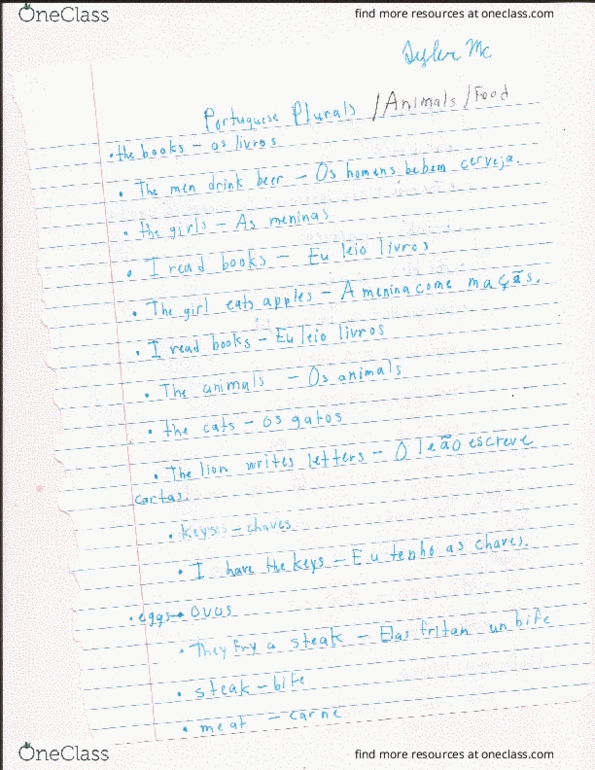 OneClass
find more resources at oneclass.com
Tyler Mc
Portuguese Plurals /Animals/Food
• the books - os livros
• The men drink beer - Os homens bebem cerveja.
• the girls - As meninas
• I read books - Eu leio livros
• The girl eats apples - A menina come maçãs.
• I read books - Eu leio livros
• The animals - Os animals
• the cats - os gatos
• The lion writes letters - O leão escreve
cartas.
• keys - chaves
• I have the keys - Eu tenho as chaves.
• eggs - ovos
• They fry a steak - Elas fritan un bife
• steak - bife
• meat - carne
OneClass
find more resources at oneclass.com